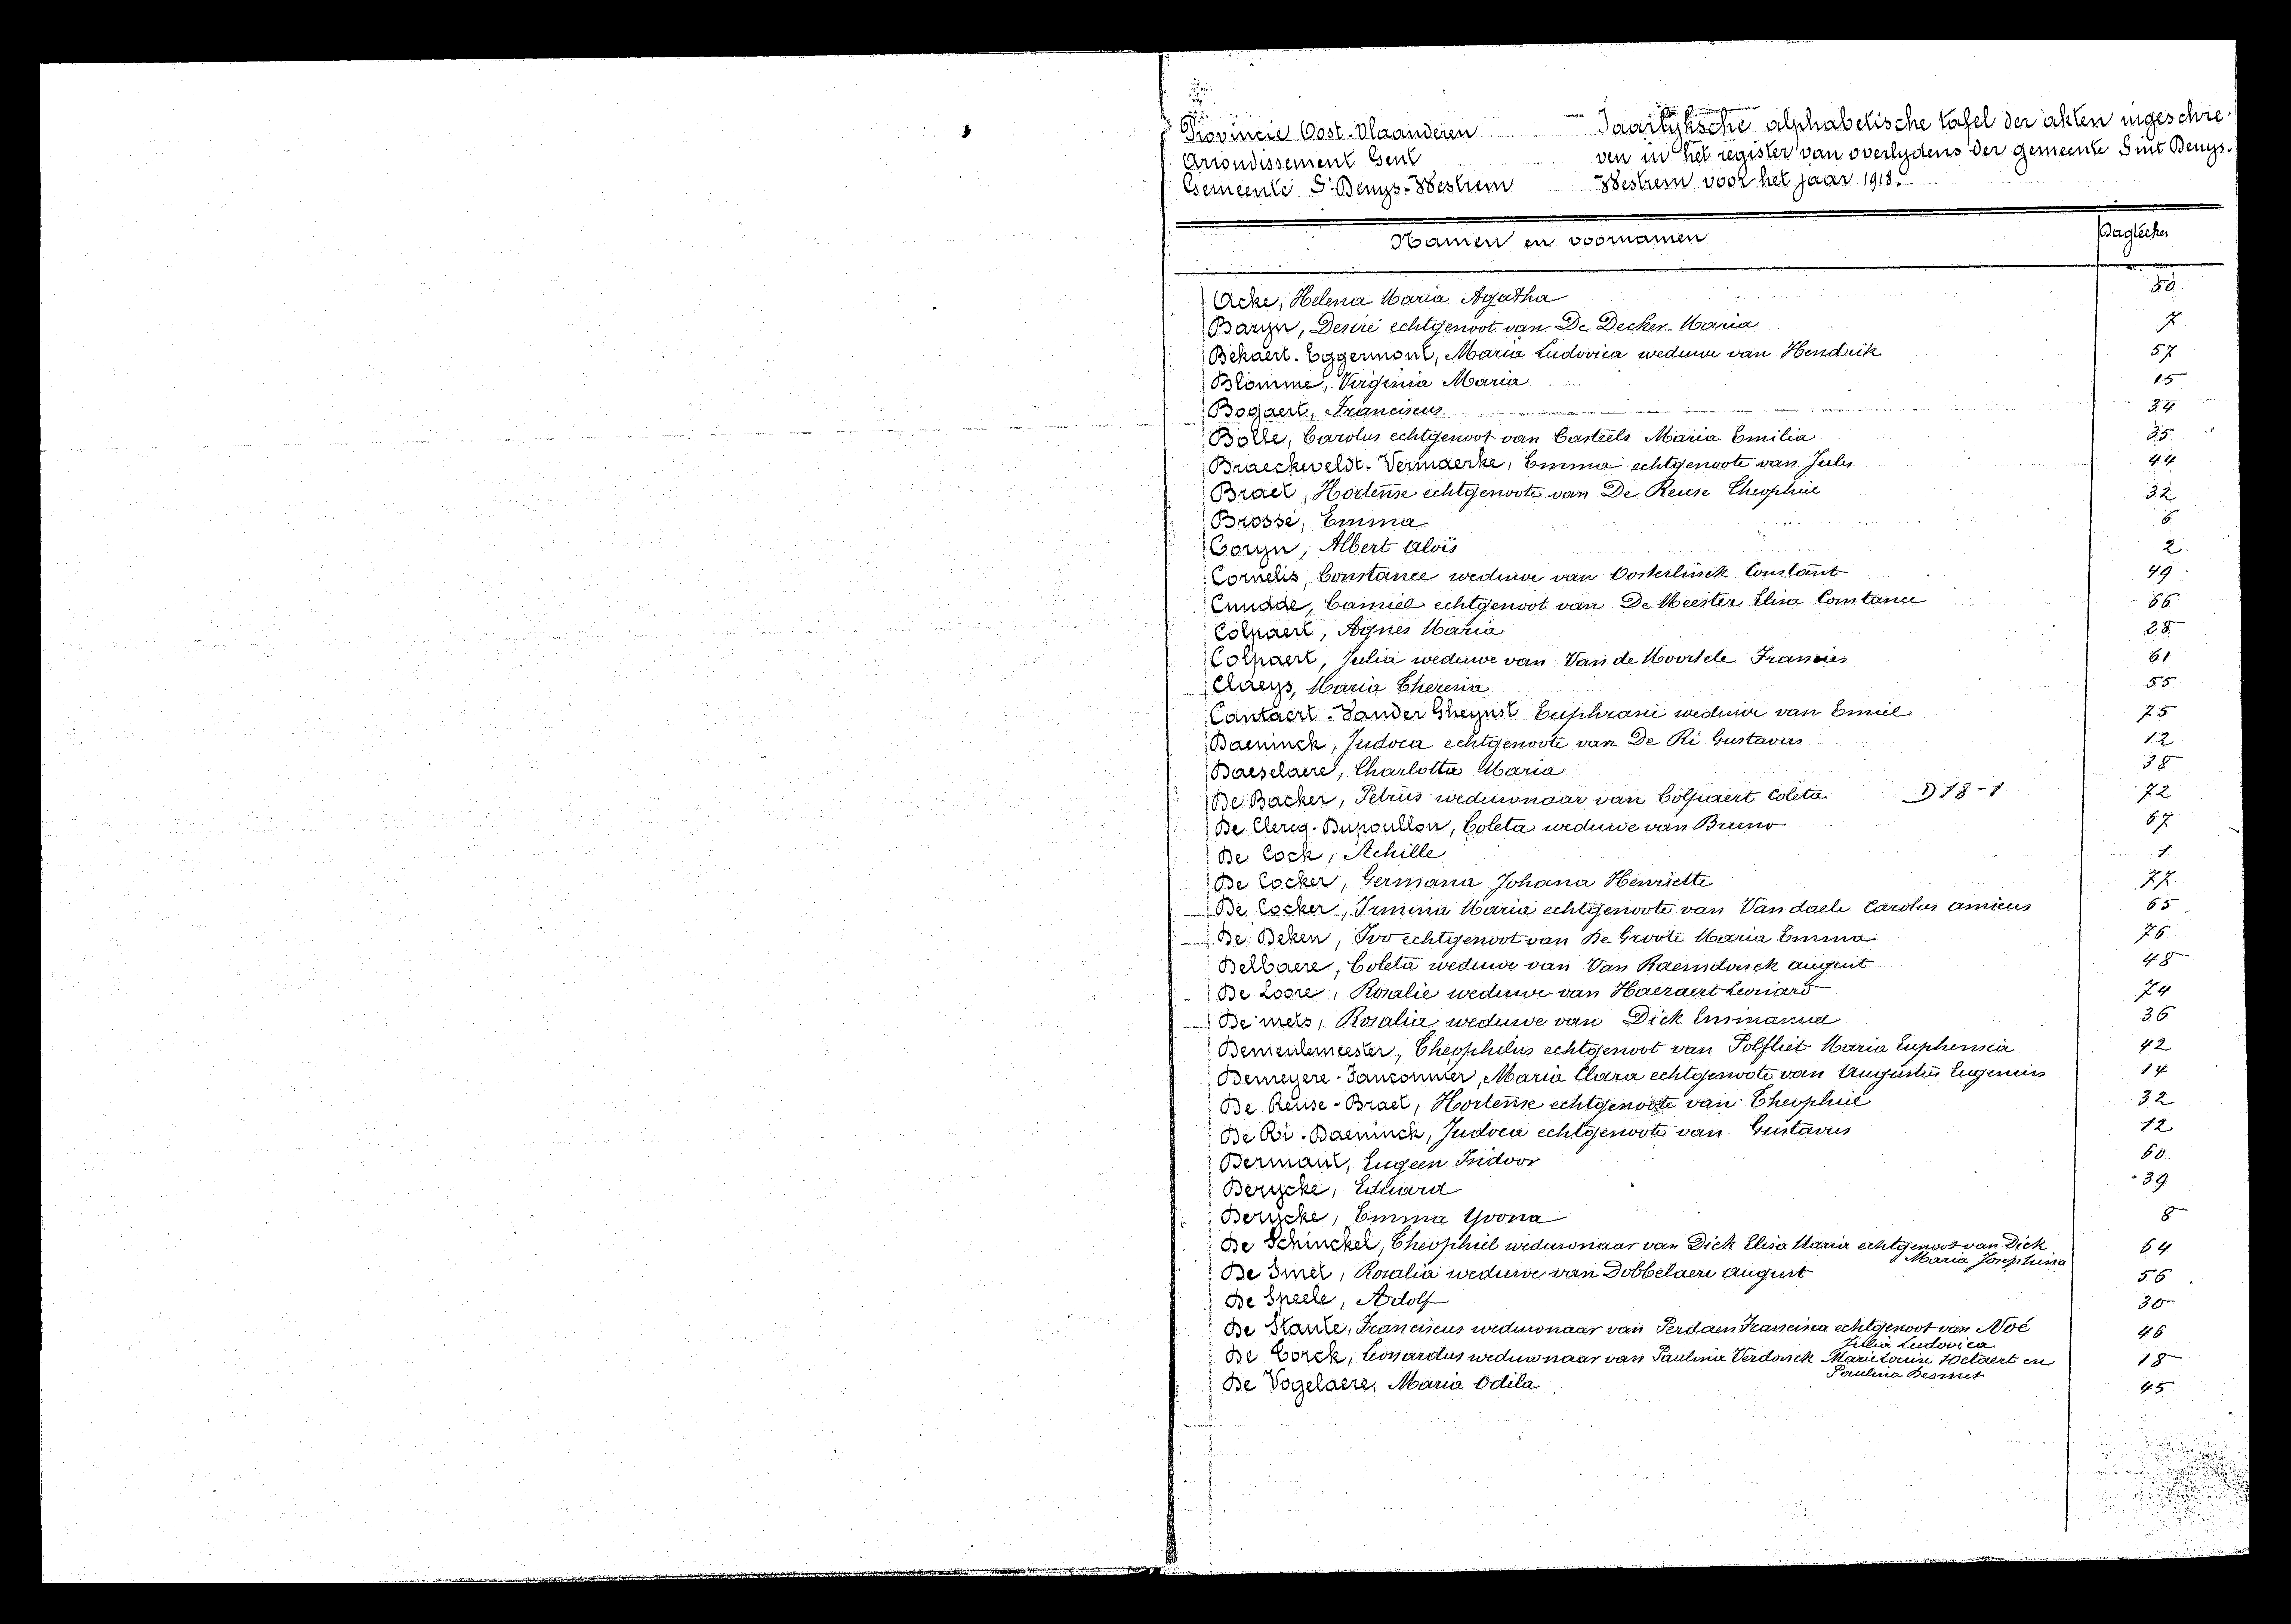 Provincie Oost-Vlaanderen
Arrondissement Gent
Gemeente St Denys-Westrem
Jaarlyksche alphabetische tafel der akten ingeschre-
ven in het register van overlydens der gemeente Sint Denys-
Westrem voor het jaar 1918.
Namen en voornamen
Acke, Helena Maria Agatha 50.
Baryn, Desiré echtgenoot van De Decker Maria 7
Bekaert-Eggermont, Maria Ludovica weduwe van Hendrik 57
Blomme, Virginia Maria 15
Bogaert, Franciscus 34
Bolle, Carolus echtgenoot van Casteels Maria Emilia 35
Braeckeveldt-Vermaerke, Emma echtgenoote van Jules 44
Brael, Hortense echtgenoote van De Reuse Theophiel 32
Brossé, Emma 6
Coryn, Albert Aloïs 2
Cornelis, Constance weduwe van Oosterlinck Constant 49
Cnudde, Camiel echtgenoot van De Meester Elisa Constance 66
Colpaert, Agnes Maria 28
Colpaert, Julia weduwe van Van de Moortele Francies 61
Claeys, Maria Theresia 55
Cantaert-Vander Gheynst Euphrasie weduwe van Emiel 75
Daeninck, Judoca echtgenoote van De Ri Gustavus 12
Daeselaere, Charlotta Maria 38
De Backer, Petrus weduwnaar van Colpaert Coleta D 18-1 72
De Clercq-Dupoullon, Coleta weduwe van Bruno 67
De Cock, Achille 1
De Cocker, Germana Johana Henriette 77
De Cocker, Irmina Maria echtgenoote van Van daele Carolus amicus 65
De Deken, Ivo echtgenoot van De Groote Maria Emma 76
Delbaere, Coleta weduwe van Van Raemdonck august 48
De Loore, Rosalie weduwe van Haezaert Leonard 74
De mets, Rosalia weduwe van Dick Emmanuel 36
Demeulemeester, Theophilus echtgenoot van Polfliet Maria Euphemia 42
Demeyere-Fauconnier, Maria Clara echtgenoote van Augustus Eugenius 14
De Reuse-Brael, Hortense echtgenoote van Theophiel 32
De Ri-Daeninck, Judoca echtgenoote van Gustavus 12
Dermaut, Eugeen Isidoor 60.
Derycke, Eduard 39
Derycke, Emma Yvona 8
De Schinckel, Theophiel weduwnaar van Dick Elisa Maria echtgenoot van Dick 64
Maria Josephina
De Smet, Rosalia weduwe van Dobbelaere august 56
De Speele, Adolf 30
De Stante, Franciscus weduwnaar van Perdaen Francisca echtgenoot van Noé 46
Julia Ludovica
De Corck, Leonardus weduwnaar van Paulina Verdonck Marie Louise Wetaert en 18
Paulina Desmet
De Vogelaere, Maria Odila 45